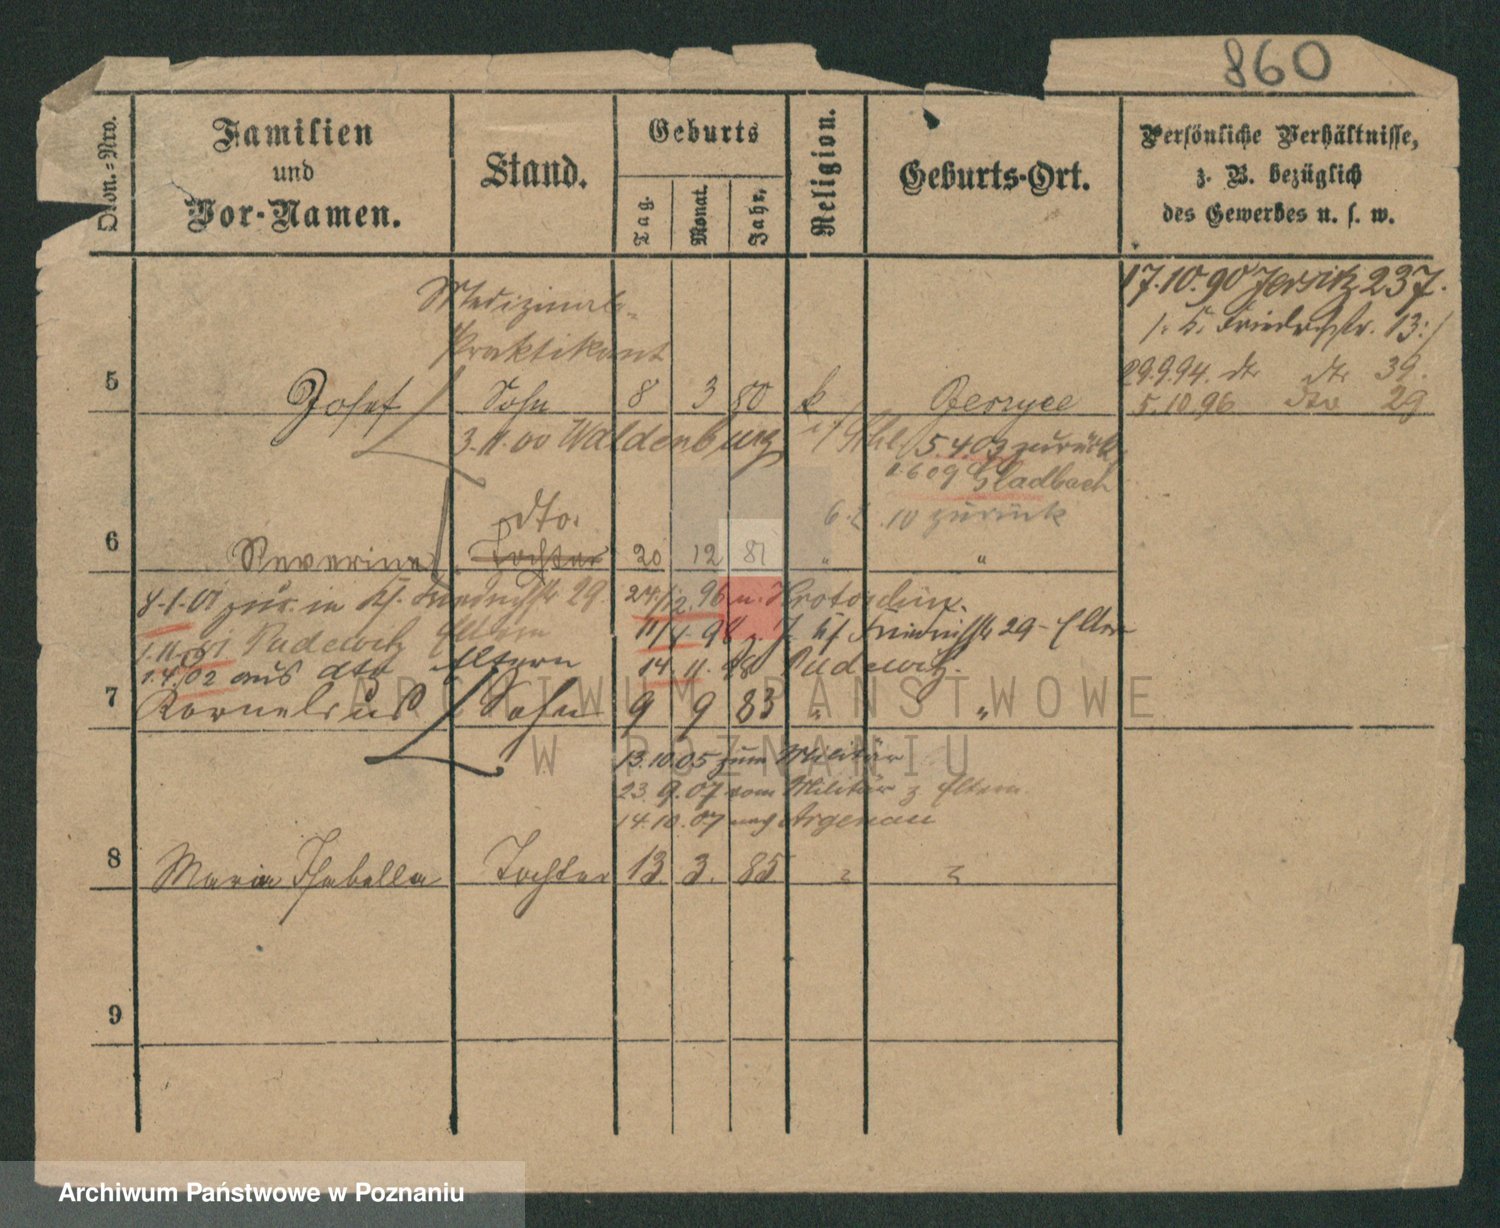 860
Ordn.=Nro.
Familien
und
Vor-Namen.
Stand.
Geburts
Tag.
Monat.
Jahr.
Religion.
Geburts-Ort.
Persönliche Verhältnisse,
z. B. bezüglich
des Gewerbes u. s. w.
17.10.90 Jersitz 237.
/: K. Friedrichstr. 13 :/
29.9.94. dto dto 39.
5.10.96 dto 29
Medizinal-
Praktikant
5 Josef Sohn 8 3 80 k
3.11.00 Waldenburg i/Schl. 5.4.03 zurück
1.6 09 Gladbach
10 zurück
dto.
6 Severina Tochter 20 12 81 " "
8.1.01 zur. in Kf. Friedrichstr 29. 24/12.96 n. Krotoschin.
11/1.98 Kf Friedrichstr 29 - Eltern
1.11.01 Pudewitz Eltern
1.4.02 aus dto Eltern 14.11.98 Pudewitz.
7 Kornelius Sohn 9 9 83 " "
13.10.05 zum Militär
23.9.07 vom Militär z Eltern
14.10.07 nach Argenau
8 Maria Isabella Tochter 13. 3. 85 " "
9
ARCHIWUM PAŃSTWOWE
W POZNANIU
Archiwum Państwowe w Poznaniu